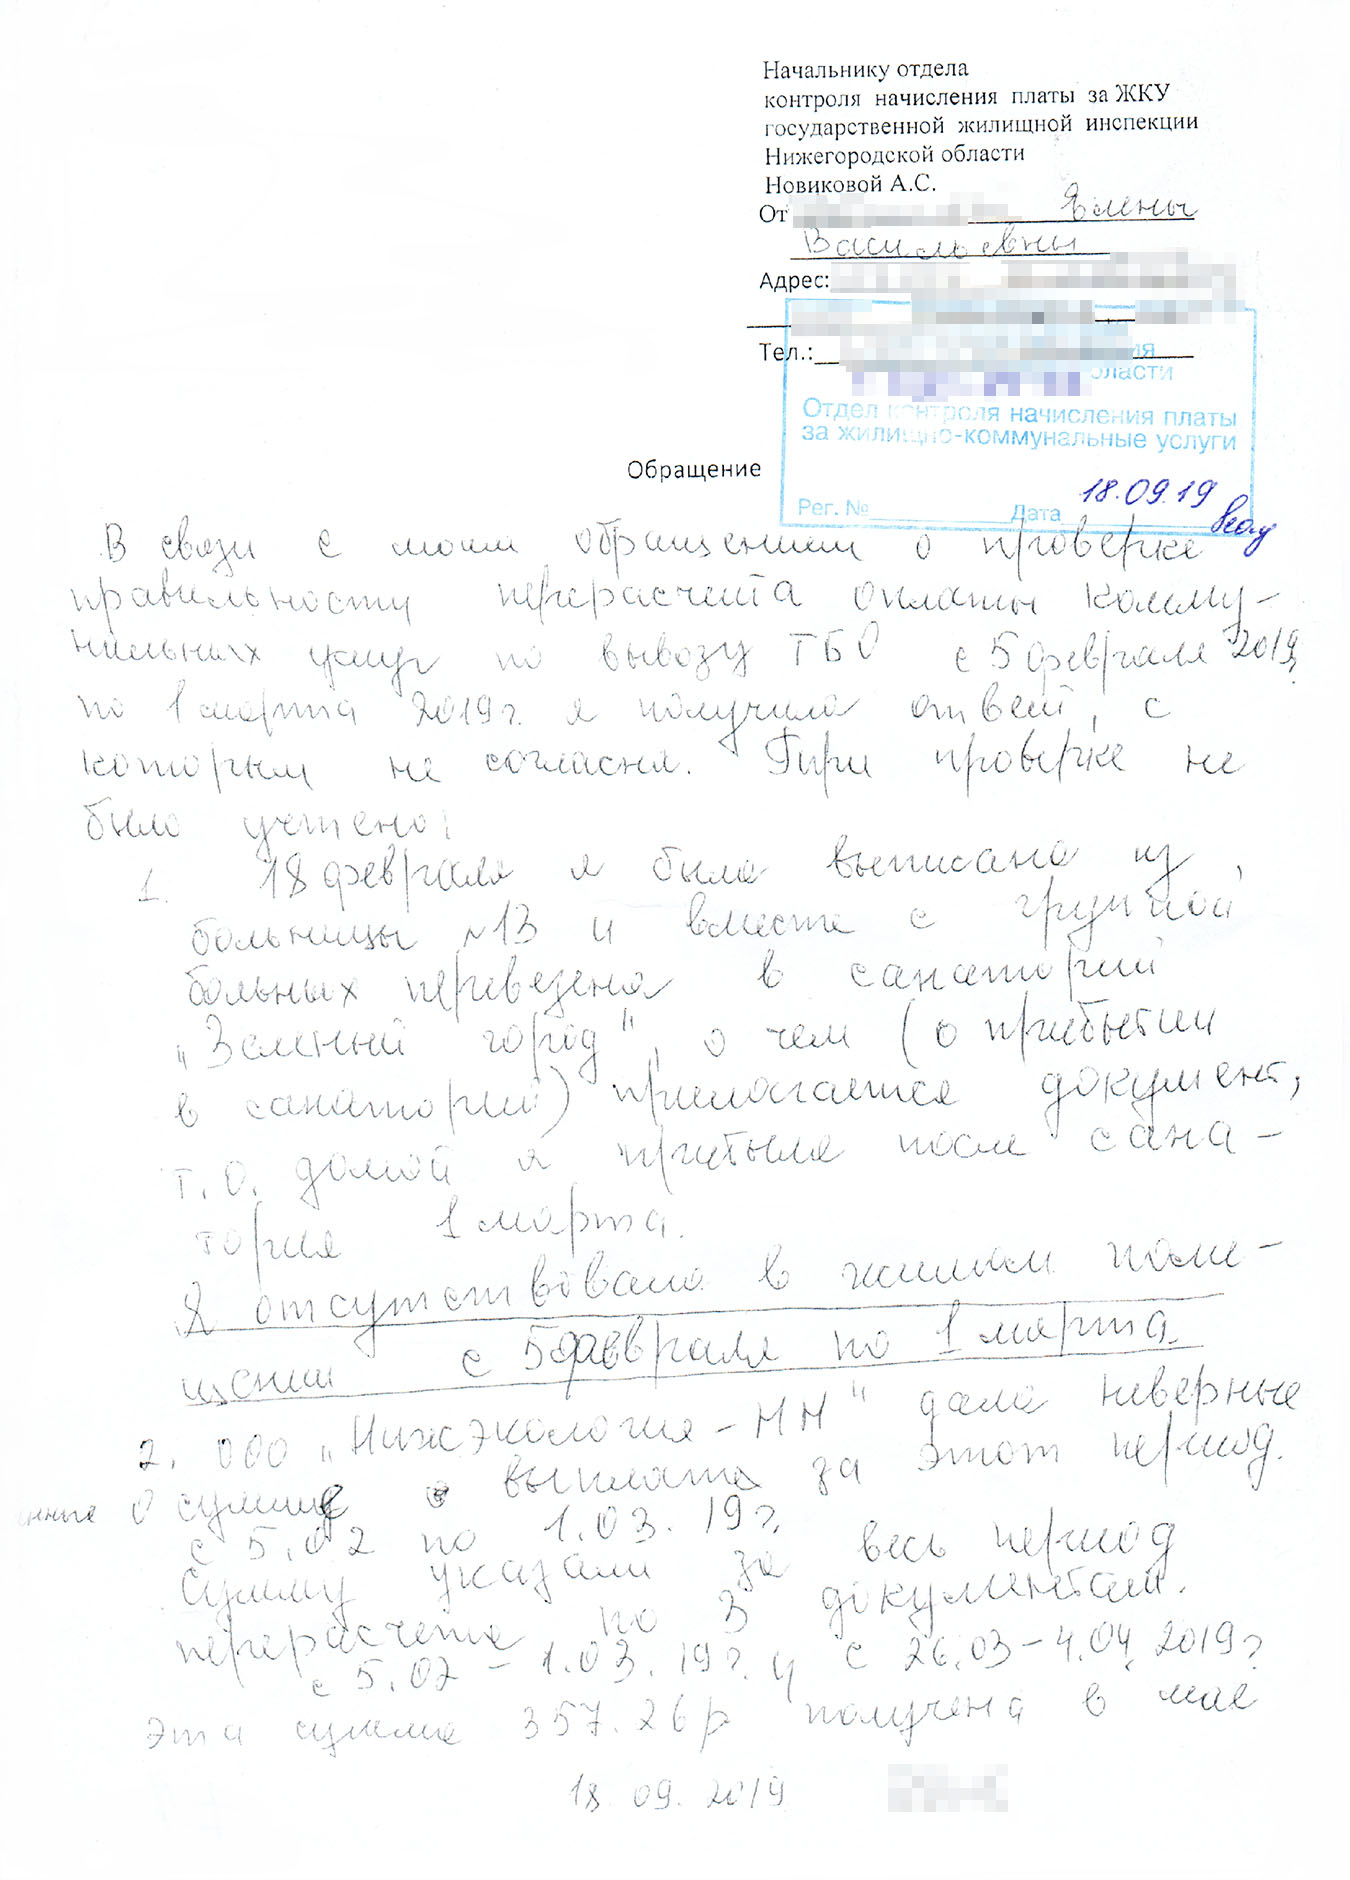 Начальнику отдела
контроля начисления платы за ЖКУ
государственной жилищной инспекции
Нижегородской области
Новиковой А.С.
От Елены
Васильевны
Адрес:
Тел.:
ласти
Отдел контроля начисления платы
за жилищно-коммунальные услуги
Рег. № Дата 18.09.19
Обращение
В связи с моим обращением о проверке
правильности перерасчета оплаты комму-
нальных услуг по вывозу ТБО с 5 февраля 2019
по 1 марта 2019г. я получила ответ, с
которым не согласна. При проверке не
было учтено:
1. 18 февраля я была выписана из
больницы №13 и вместе с группой
больных перевезена в санаторий
„Зеленый город", о чем (о прибытии
в санаторий) прилагается документ,
т.о. домой я прибыла после сана-
тория 1 марта.
Я отсутствовала в жилом поме-
щении с 5 февраля по 1 марта.
2. ООО „Нижэкология-НН" дала неверные
нные о сумме выплаты за этот период.
с 5.02 по 1.03.19г.
Сумму указали за весь период
перерасчета по 3 документам.
с 5.02 - 1.03.19г. и с 26.03-4.04.2019г.
Эта сумма 357.26р получена в мае
18.09.2019